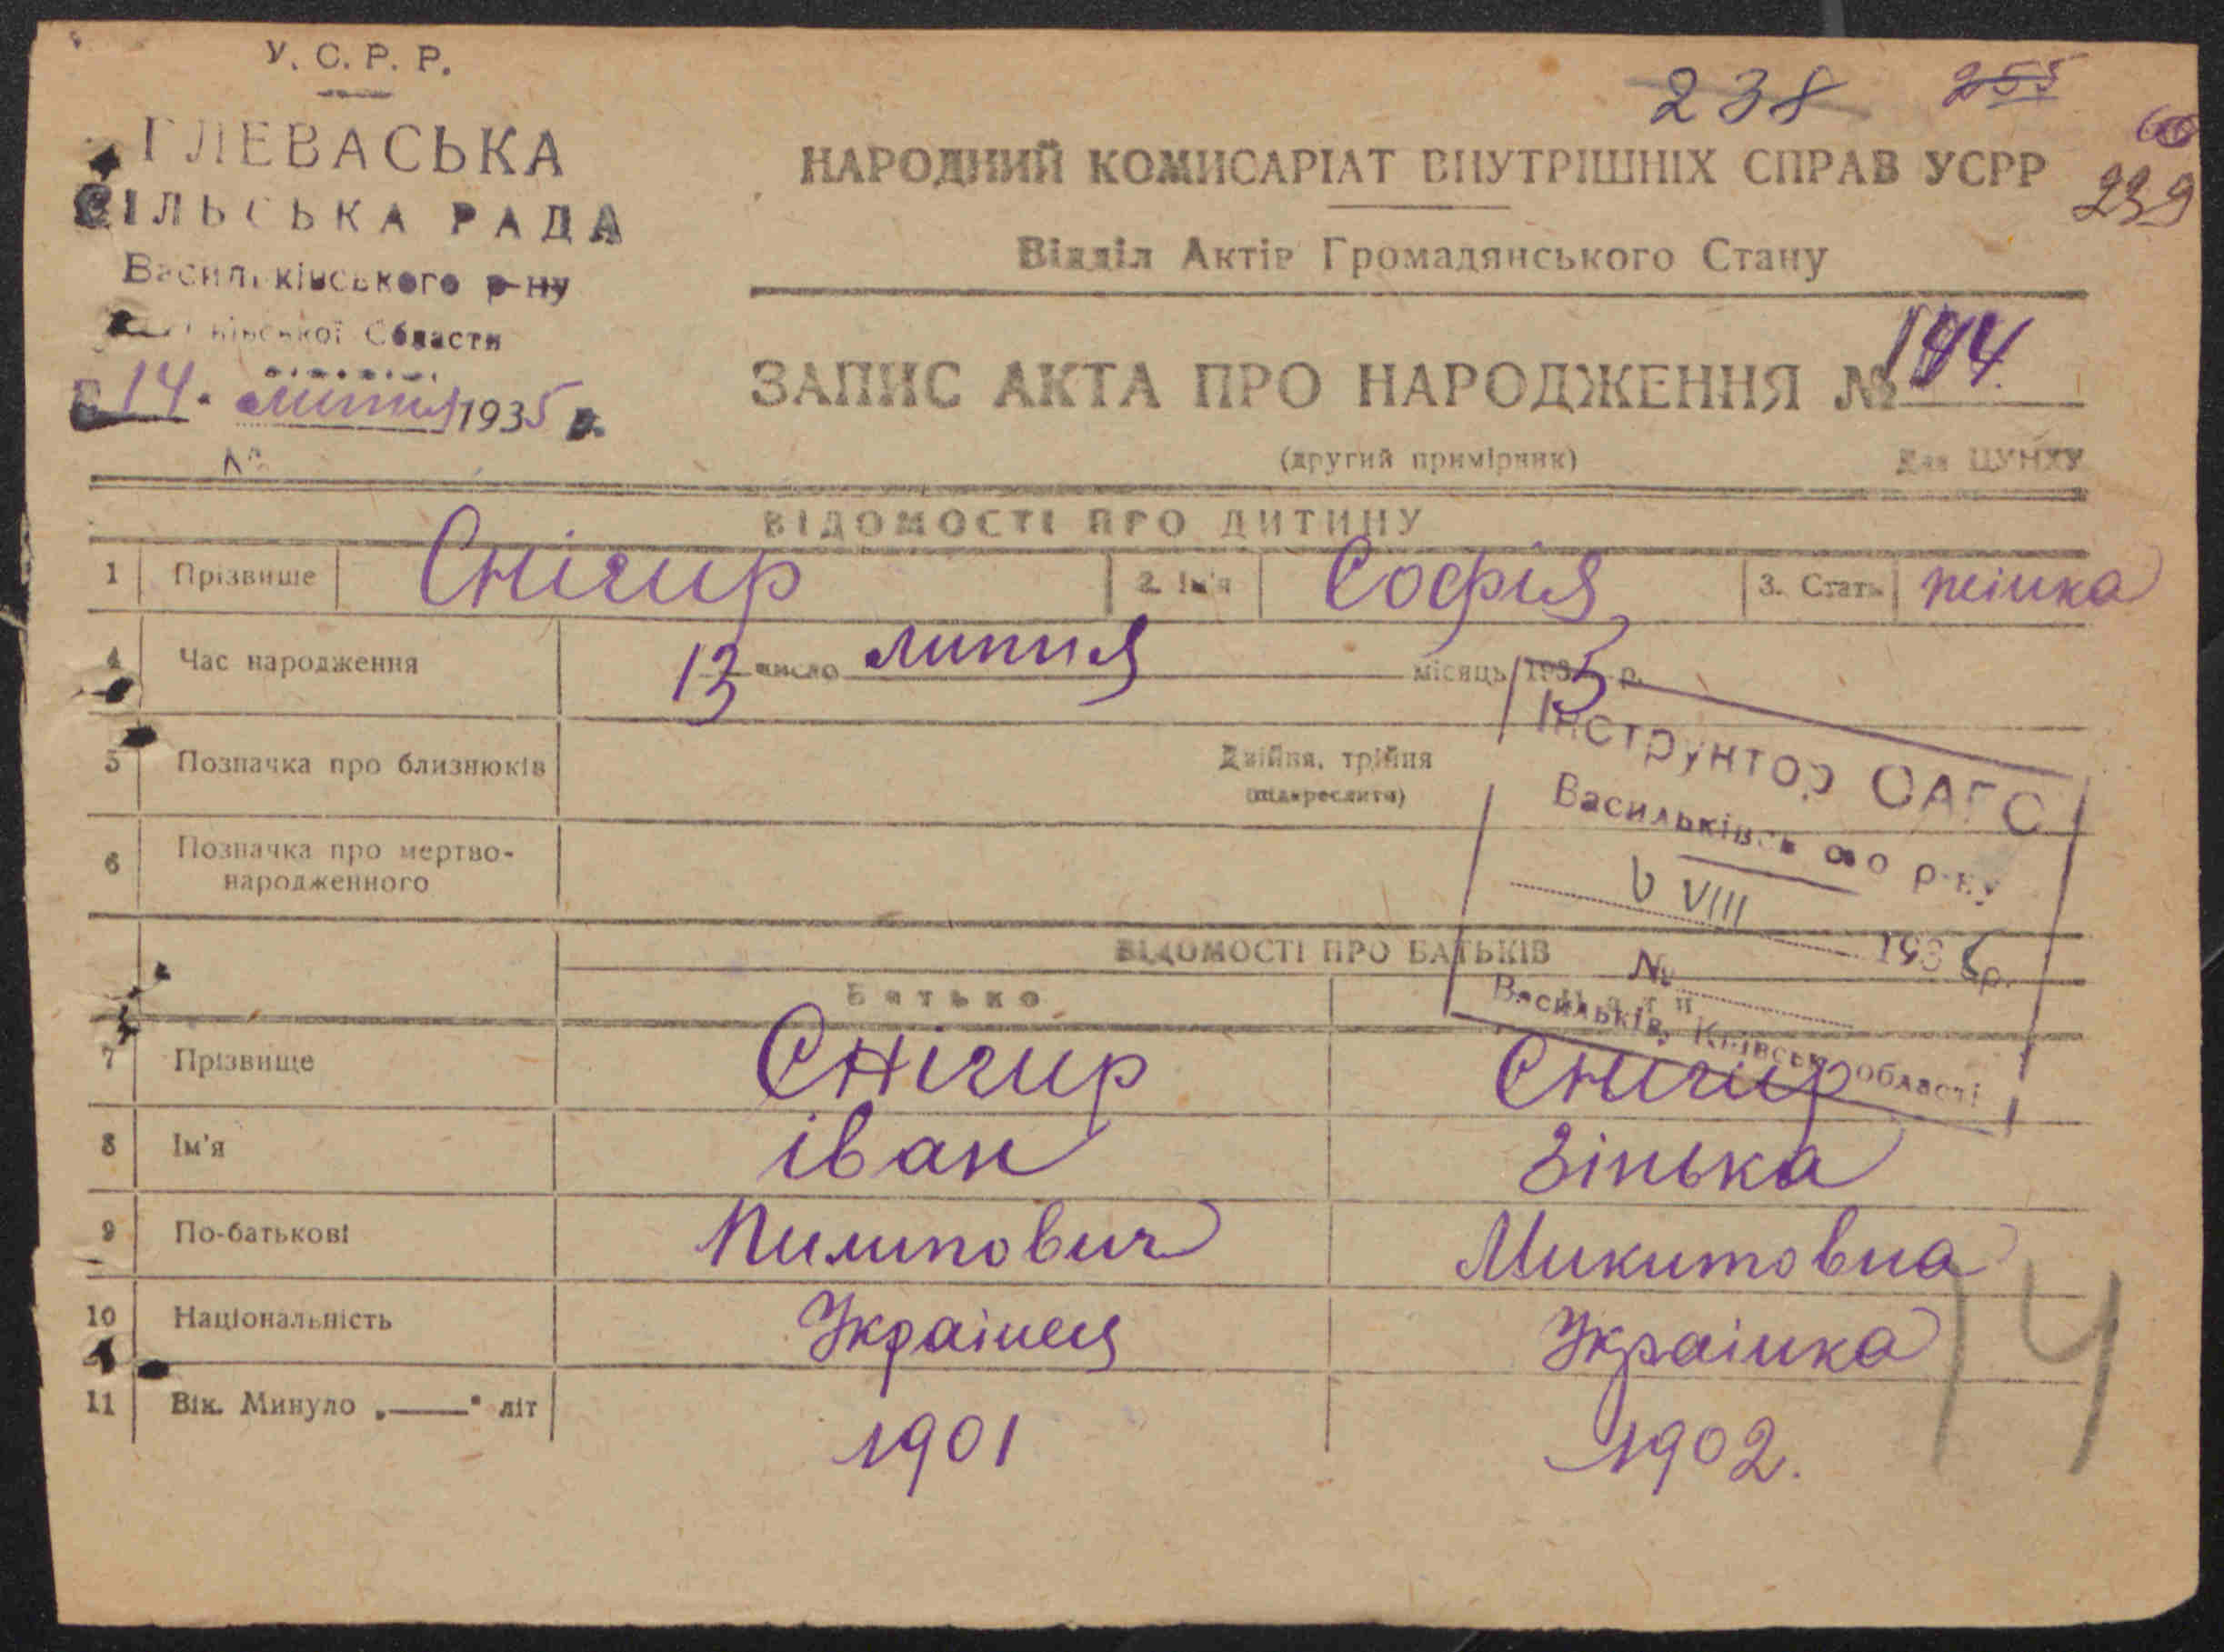 У. С. Р. Р.
ГЛЕВАСЬКА
СІЛЬСЬКА РАДА
Васильківського р-ну
Області
14. липня 1935 р.
№
238 255
60
239
НАРОДНИЙ КОМИСАРІАТ ВНУТРІШНІХ СПРАВ УСРР
Відділ Актів Громадянського Стану
ЗАПИС АКТА ПРО НАРОДЖЕННЯ № 144.
(другий примірник) Для ЦУНХУ
ВІДОМОСТІ ПРО ДИТИНУ
1 Прізвище Снігир 2. Ім'я Софія 3. Стать жінка
4 Час народження 13 число липня місяць 1935 р.
5 Позначка про близнюків Двійня, трійня
(підкреслити)
6 Позначка про мертво-
народженного
Інструктор ОАГС
Васильківського р-ну
6 VIII 1935 р.
№
Васильків, Київської області
ВІДОМОСТІ ПРО БАТЬКІВ
Батько Мати
7 Прізвище Снігир Снигир
8 Ім'я іван Зінька
9 По-батькові Пилипович Микитовна
10 Національність Украінец Украінка
11 Вік. Минуло „——" літ 1901 1902.
14